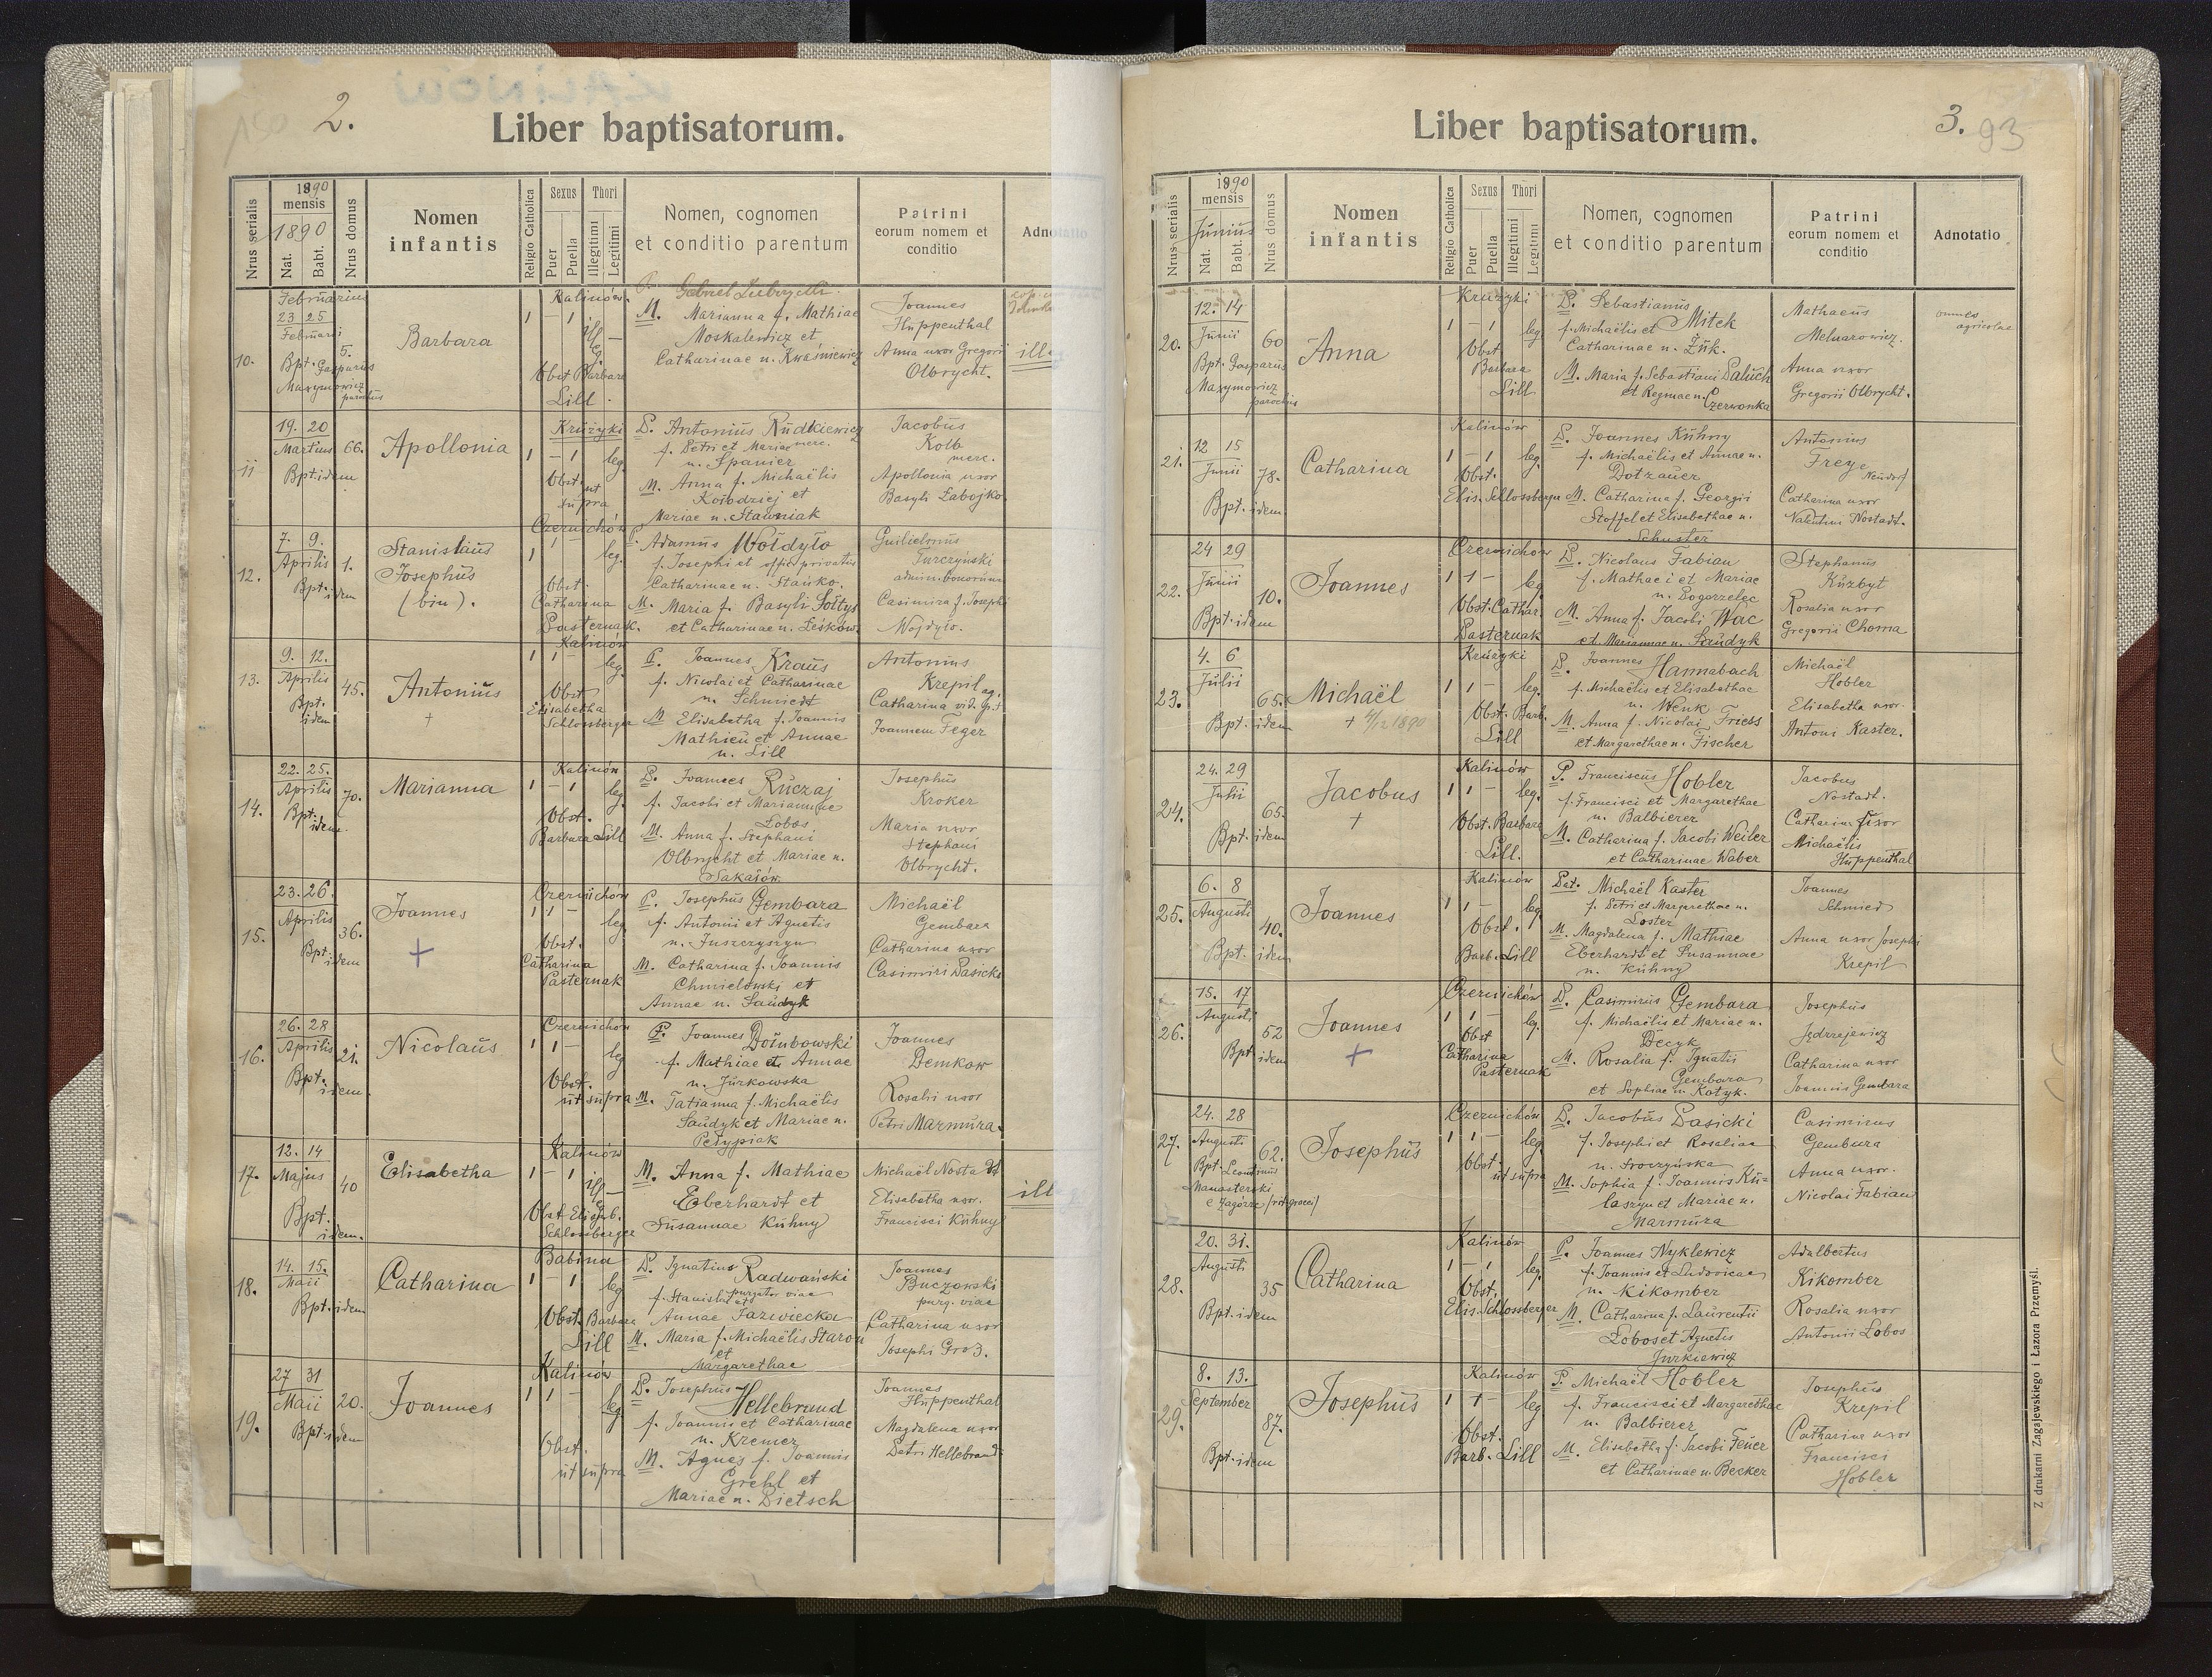 2.
Liber baptisatorum.
Nrus serialis
1890
mensis
1890
Nat.
Babt.
Nrus domus
Nomen
infantis
Religio Catholica
Sexus
Puer
Puella
Thori
Illegitimi
Legitimi
Nomen, cognomen
et conditio parentum
Patrini
eorum nomem et
conditio
Adnotatio
10.
Februarius
23 25
Februarii
Bpt. Gasparus
Maxymowicz
parochus
5.
Barbara
Kalinów
1 – 1 ill. –
Obst. Barbara
Lill.
M. Marianna f. Mathiae
Moskalewicz et
Catharinae n. Kwaśniewicz
Joannes
Huppenthal
Anna uxor Gregorii
Olbrycht.
ill.
11
19. 20
Martius
Bpt. idem
66.
Apollonia
Kružyki
1 – 1 leg.
Obst. ut
supra
P. Antonius Rudkiewicz
f. Petri et Mariae merc.
n. Spanier
M. Anna f. Michaëlis
Kołodziej et
Mariae n. Stawniak
Jacobus
Kolb
merc.
Apollonia uxor
Basyli Łabojko.
12.
7. 9.
Aprilis
Bpt. idem
1.
Stanislaus
Josephus
(bin).
Czernichów
1 1 – leg.
Obst.
Catharina
Pasternak.
P. Adamus Wołdyło
f. Josephi et offic. privatus
Catharinae n. Stańko.
M. Maria f. Basyli Sołtys
et Catharinae n. Leśków.
Guilielmus
Turczyński
admin. bonorum
Casimira f. Josephi
Wojdyło.
13.
9. 12.
Aprilis
Bpt.
idem
45.
Antonius
+
Kalinów
1 1 – leg.
Obst.
Elisabetha
Schlossberger
P. Joannes Kraus
f. Nicolai et Catharinae
n. Schmiedt
M. Elisabetha f. Joannis
Mathieu et Annae
n. Lill
Antonius
Krepil ag.
Catharina vid. p. +
Joannem Feger
14.
22. 25.
Aprilis
Bpt.
idem.
70.
Marianna
Kalinów
1 – 1 leg.
Obst.
Barbara Lill
P. Joannes Ruczaj
f. Jacobi et Mariannae
Łobos
M. Anna f. Stephani
Olbrycht et Mariae n.
Sakałów.
Josephus
Kroker
Maria uxor
Stephani
Olbrycht.
15.
23. 26.
Aprilis
Bpt. idem
36.
Joannes
+
Czernichów
1 1 – leg
Obst.
Catharina
Pasternak
P. Josephus Gembara
f. Antonii et Agnetis
n. Juszczyszyn
M. Catharina f. Joannis
Chmielowski et
Annae n. Saudyk
Michaël
Gembara
Catharina uxor
Casimiri Pasicki
16.
26. 28
Aprilis
Bpt.
idem.
21.
Nicolaus
Czernichów
1 1 – leg
Obst.
ut supra
P. Joannes Dołubowski
f. Mathiae et Annae
n. Jurkowska
M. Tatianna f. Michaëlis
Saudyk et Mariae n.
Pełypiak
Joannes
Demkow
Rosalii uxor
Petri Marmura.
17.
12. 14
Majus
Bpt.
idem.
40
Elisabetha
Kalinów
1 – 1 ill. –
Obst. Elisab.
Schlossberger
M. Anna f. Mathiae
Eberhardt et
Susannae Kühny
Michaël Nostadt
Elisabetha uxor.
Francisci Kühny
ill
18.
14. 15.
Maii
Bpt. idem
Catharina
Babina
1 – 1 leg
Obst. Barbara
Lill
P. Ignatius Radwański
f. Stanislai et purgator viae
Annae Jazwiecka
M. Maria f. Michaëlis Staroń
et
Margarethae
Joannes
Buczowski
purg. viae
Catharina uxor
Josephi Groß.
19.
27 31
Maii
Bpt. idem
20.
Joannes
Kalinów
1 1 – leg
Obst.
ut supra
P. Josephus
Hellebrand
f. Joannis et Catharinae
n. Kremer
M. Agnes f. Joannis
Grehl et
Mariae n. Dietsch
Joannes
Huppenthal
Magdalena uxor
Petri Hellebrand.
3. 93
Liber baptisatorum.
Nrus serialis
1890
mensis
Junius
Nat.
Babt.
Nrus domus
Nomen
infantis
Religio Catholica
Sexus
Puer
Puella
Thori
Illegitimi
Legitimi
Nomen, cognomen
et conditio parentum
Patrini
eorum nomem et
conditio
Adnotatio
20.
12. 14
Junii
Bpt. Gasparus
Maxymowicz
parochus
60
Anna
Kružyki
1 – 1 leg.
Obst.
Barbara
Lill
P. Sebastianus
f. Michaëlis et Mitek
Catharinae n. Żuk.
M. Maria f. Sebastiani Paluch
et Reginae n. Czerwonka
Mathaeus
Melnarowicz.
Anna uxor
Gregorii Olbrycht.
omnes
agricolae
21.
12 15
Junii
Bpt. idem.
78.
Catharina
Kalinów
1 – 1 leg.
Obst.
Elis. Schlossberger
P. Joannes Kühny
f. Michaëlis et Annae n.
Dotzauer
M. Catharina f. Georgii
Stoffel et Elisabethae n.
Schuster
Antonius
Frey
Neudorf
Catharina uxor
Valentini Nostadt.
22.
24 29
Junii
Bpt. idem
10.
Joannes
Czernichów
1 1 – leg
Obst. Cathar.
Pasternak
P. Nicolaus Fabian
f. Mathaei et Mariae
n. Pogorzelec
M. Anna f. Jacobi Wac
et Mariannae n. Saudyk
Stephanus
Kuzbyt
Rosalia uxor
Gregorii Choma
23.
4. 6
Julii
Bpt. idem
65.
Michaël
+ 4/12 1890
Kružyki
1 1 – leg.
Obst. Barb.
Lill
P. Joannes Hannabach
f. Michaëlis et Elisabethae
n. Wenk
M. Anna f. Nicolai Friess
et Margarethae n. Fischer
Michaël
Hobler
Elisabetha uxor.
Antoni Kaster.
24.
24. 29
Julii
Bpt. idem
65.
Jacobus
+
Kalinów
1 1 – leg.
Obst. Barbara
Lill.
P. Franciscus Hobler
f. Francisci et Margarethae
n. Balbierer
M. Catharina f. Jacobi Weiler
et Catharinae Waber
Jacobus
Nostadt.
Catharina uxor
Michaëlis
Huppenthal
25.
6. 8
Augusti
Bpt. idem
40.
Joannes
Kalinów
1 1 – leg
Obst.
Barb. Lill
Pat. Michaël Kaster
f. Petri et Margarethae n.
Loster
M. Magdalena f. Mathiae
Eberhardt et Susannae
n. Kühny
Joannes
Schmied
Anna uxor Josephi
Krepil
26.
15. 17
Augusti
Bpt idem
52
Joannes
+
Czernichów
1 1 – leg.
Obst
Catharina
Pasternak
P. Casimirus Gembara
f. Michaëlis et Mariae n.
Decyk
M. Rosalia f. Ignatii
Gembara
et Sophiae n. Kotyk.
Josephus
Jędrzejewicz
Catharina uxor
Joannis Gembara
27.
24. 28
Augusti
Bpt. Leontinus
Manasterski
e Zagórze (rit. graeci)
62.
Josephus
Czernichów
1 1 – leg.
Obst.
ut supra
P. Jacobus Pasicki
f. Josephi et Rosaliae
n. Sroczyńska
M. Sophia f. Joannis Ku=
laszyn et Mariae n.
Marmura
Casimirus
Gembara
Anna uxor.
Nicolai Fabian
28.
20. 31.
Augusti
Bpt. idem
35
Catharina
Kalinów
1 – 1 leg.
Obst.
Elis. Schlossberger
P. Joannes Nyklewicz
f. Joannis et Ludovicae
n. Kikomber
M. Catharina f. Laurentii
Łobos et Agnetis
Jurkiewicz
Adalbertus
Kikomber
Rosalia uxor
Antonii Lobos
29.
8. 13.
September
Bpt. idem
87.
Josephus
Kalinów
1 1 – leg
Obst.
Barb. Lill
P. Michaël Hobler
f. Francisci et Margarethae
n. Balbierer
M. Elisabetha f. Jacobi Feuer
et Catharinae n. Becker
Josephus
Krepil
Catharina uxor
Francisci
Hobler
Z drukarni Zagajewskiego i Łazora Przemyśl.